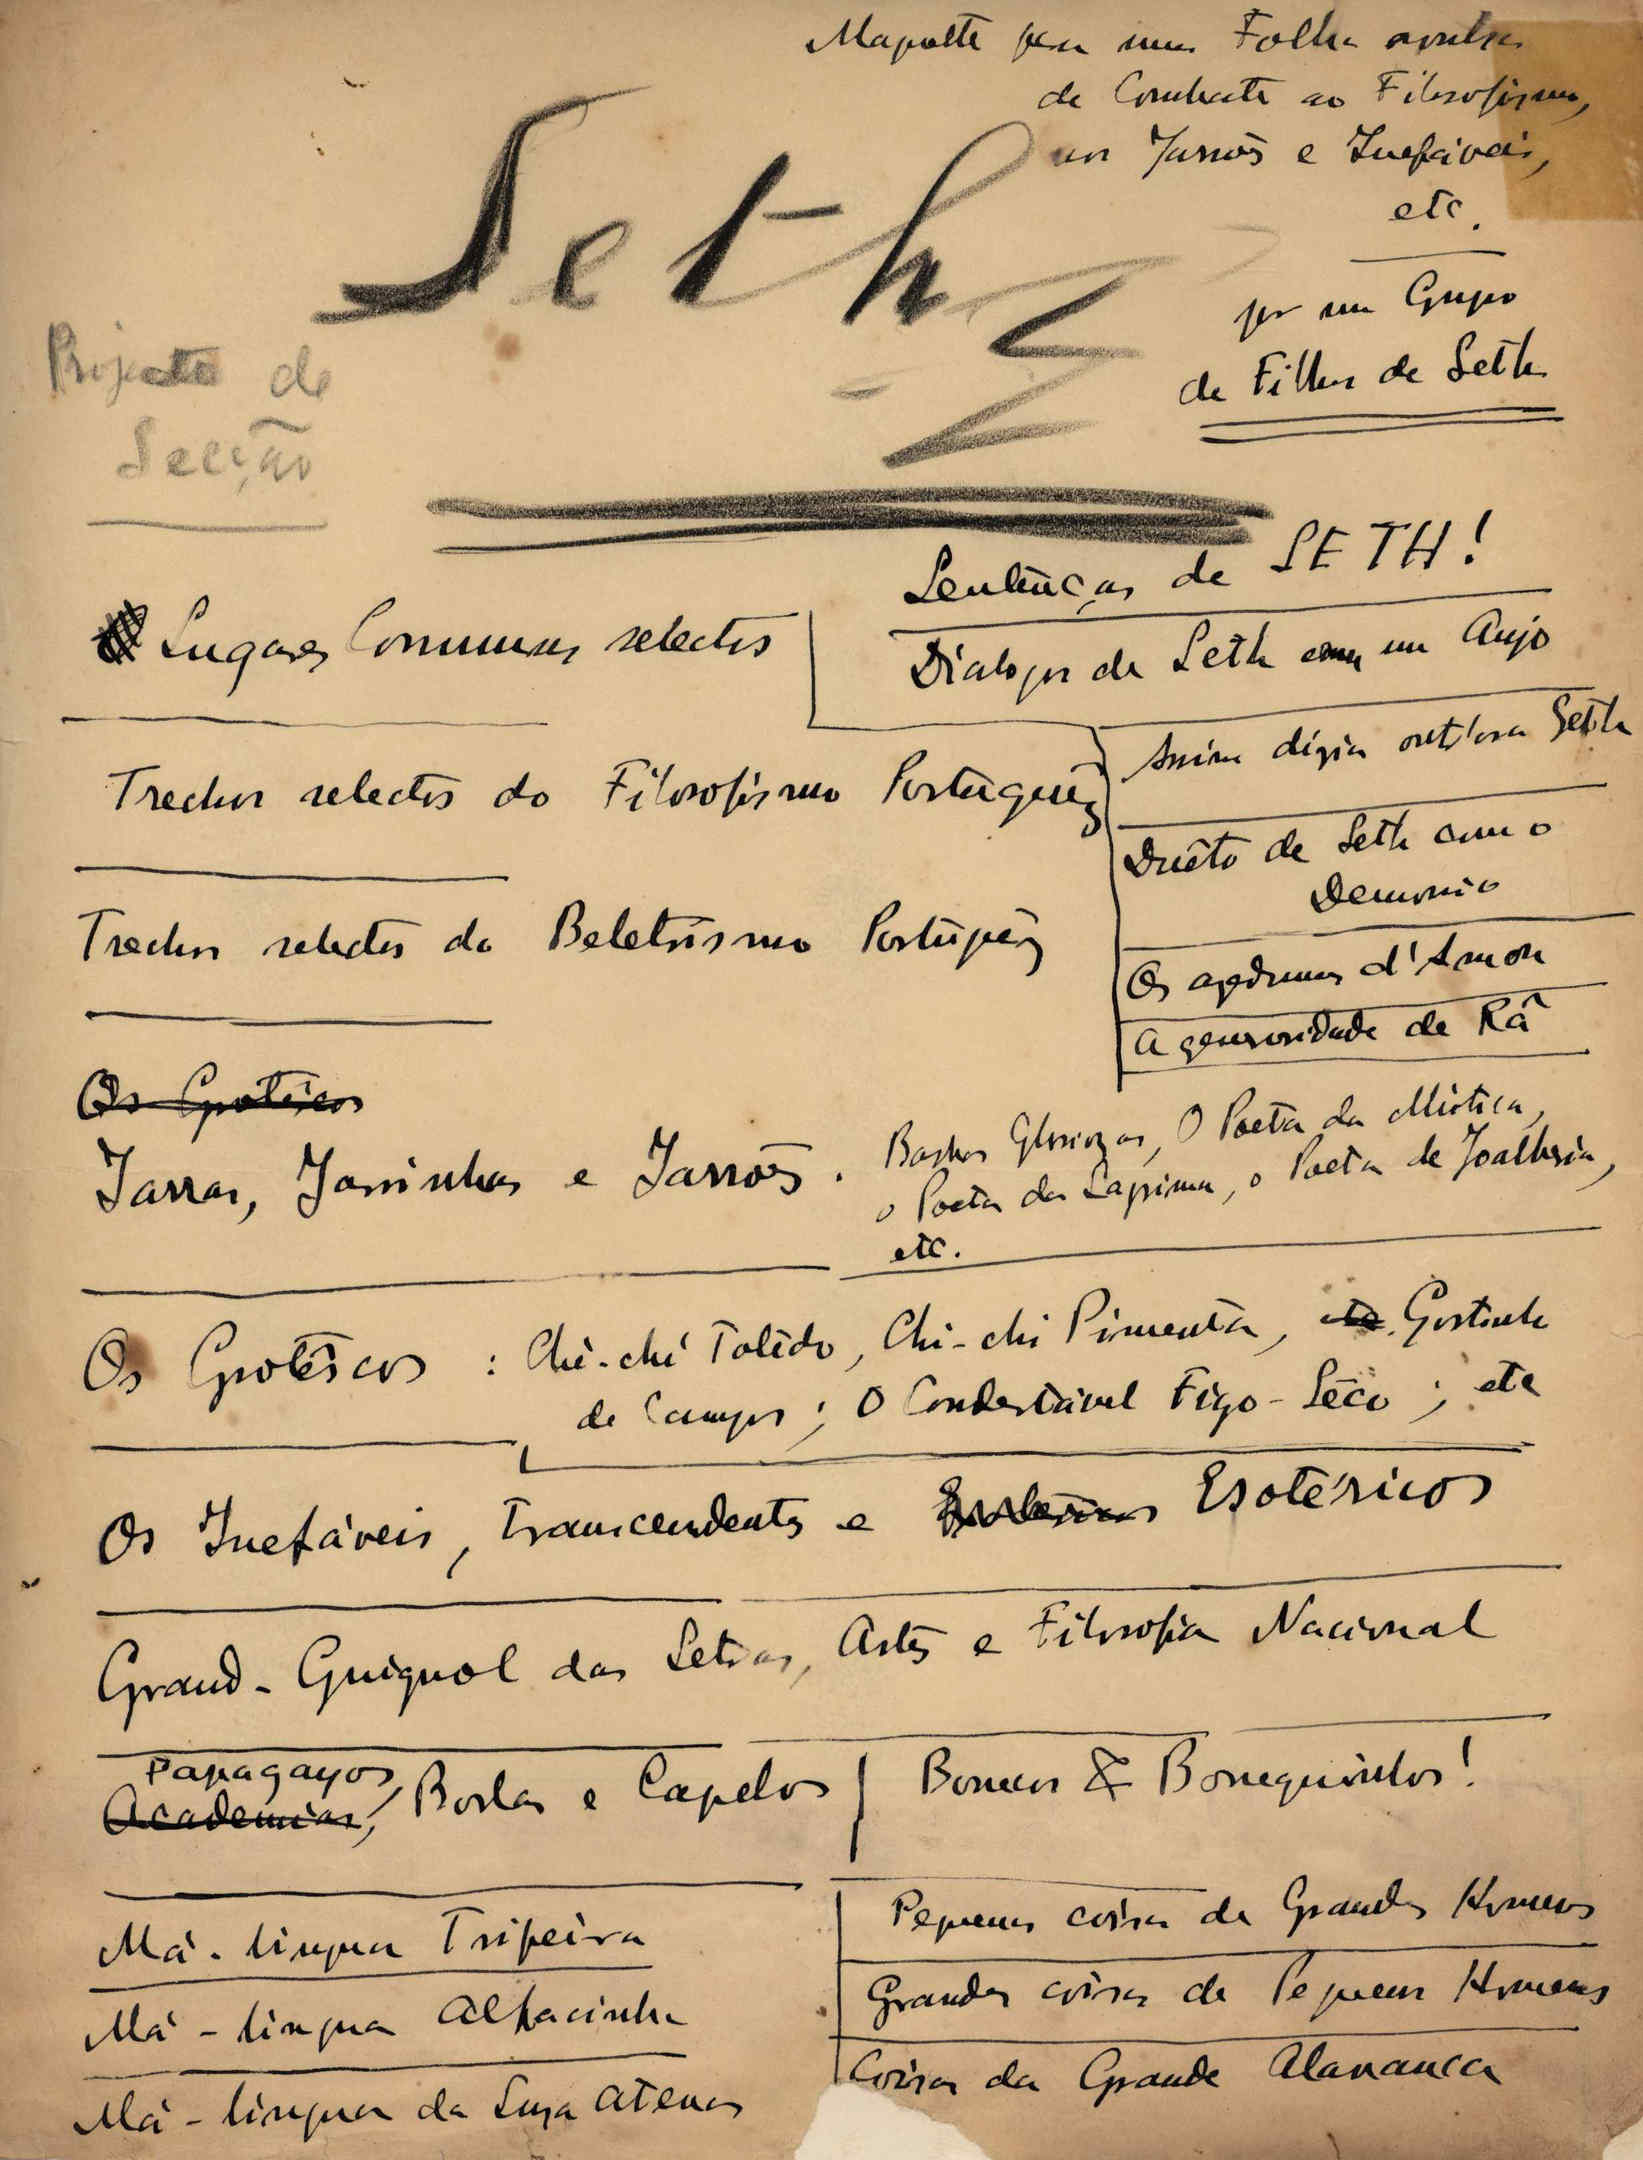 Maquette para uma Folha avulsa
de Combate ao Filosofismo,
aos Jarrões e Inefáveis,
etc.
Seth
por um Grupo
de Filhos de Seth
Projecto de
Secção
Sentenças de SETH!
Lugares Communs selectos
Dialogos de Seth com um Anjo
Assim dizia outrora Seth
Trechos selectos do Filosofismo Português
Duêto de Seth com o
Demonio
Trechos selectos do Beletrismo Português
Os apodrumes d'Amon
A generosidade de Râ
Os Grotêscos
Jarras, Jarrinhas e Jarrões.
Barbas Gloriozas, O Poeta da Mistica,
o Poeta da Lagrima, o Poeta de Joalheria,
etc.
Os Grotêscos : Chi-chi Tolêdo, Chi-chi Pimenta, etc. Gostinho
de Campos; O Condestável Figo-Sêco; etc
Os Inefáveis, Transcendentes e Esotéricos
Grand-Guignol das Letras, Artes e Filosofia Nacional
Papagayos,
Academias, Borlas e Capelos
Bonecos & Bonequinhos!
Pequenas coisas de Grandes Homens
Má-lingua Tripeira
Grandes coisas de Pequenos Homens
Má-lingua Alfacinha
Coisas da Grande Alavanca
Má-lingua da Lusa Atenas